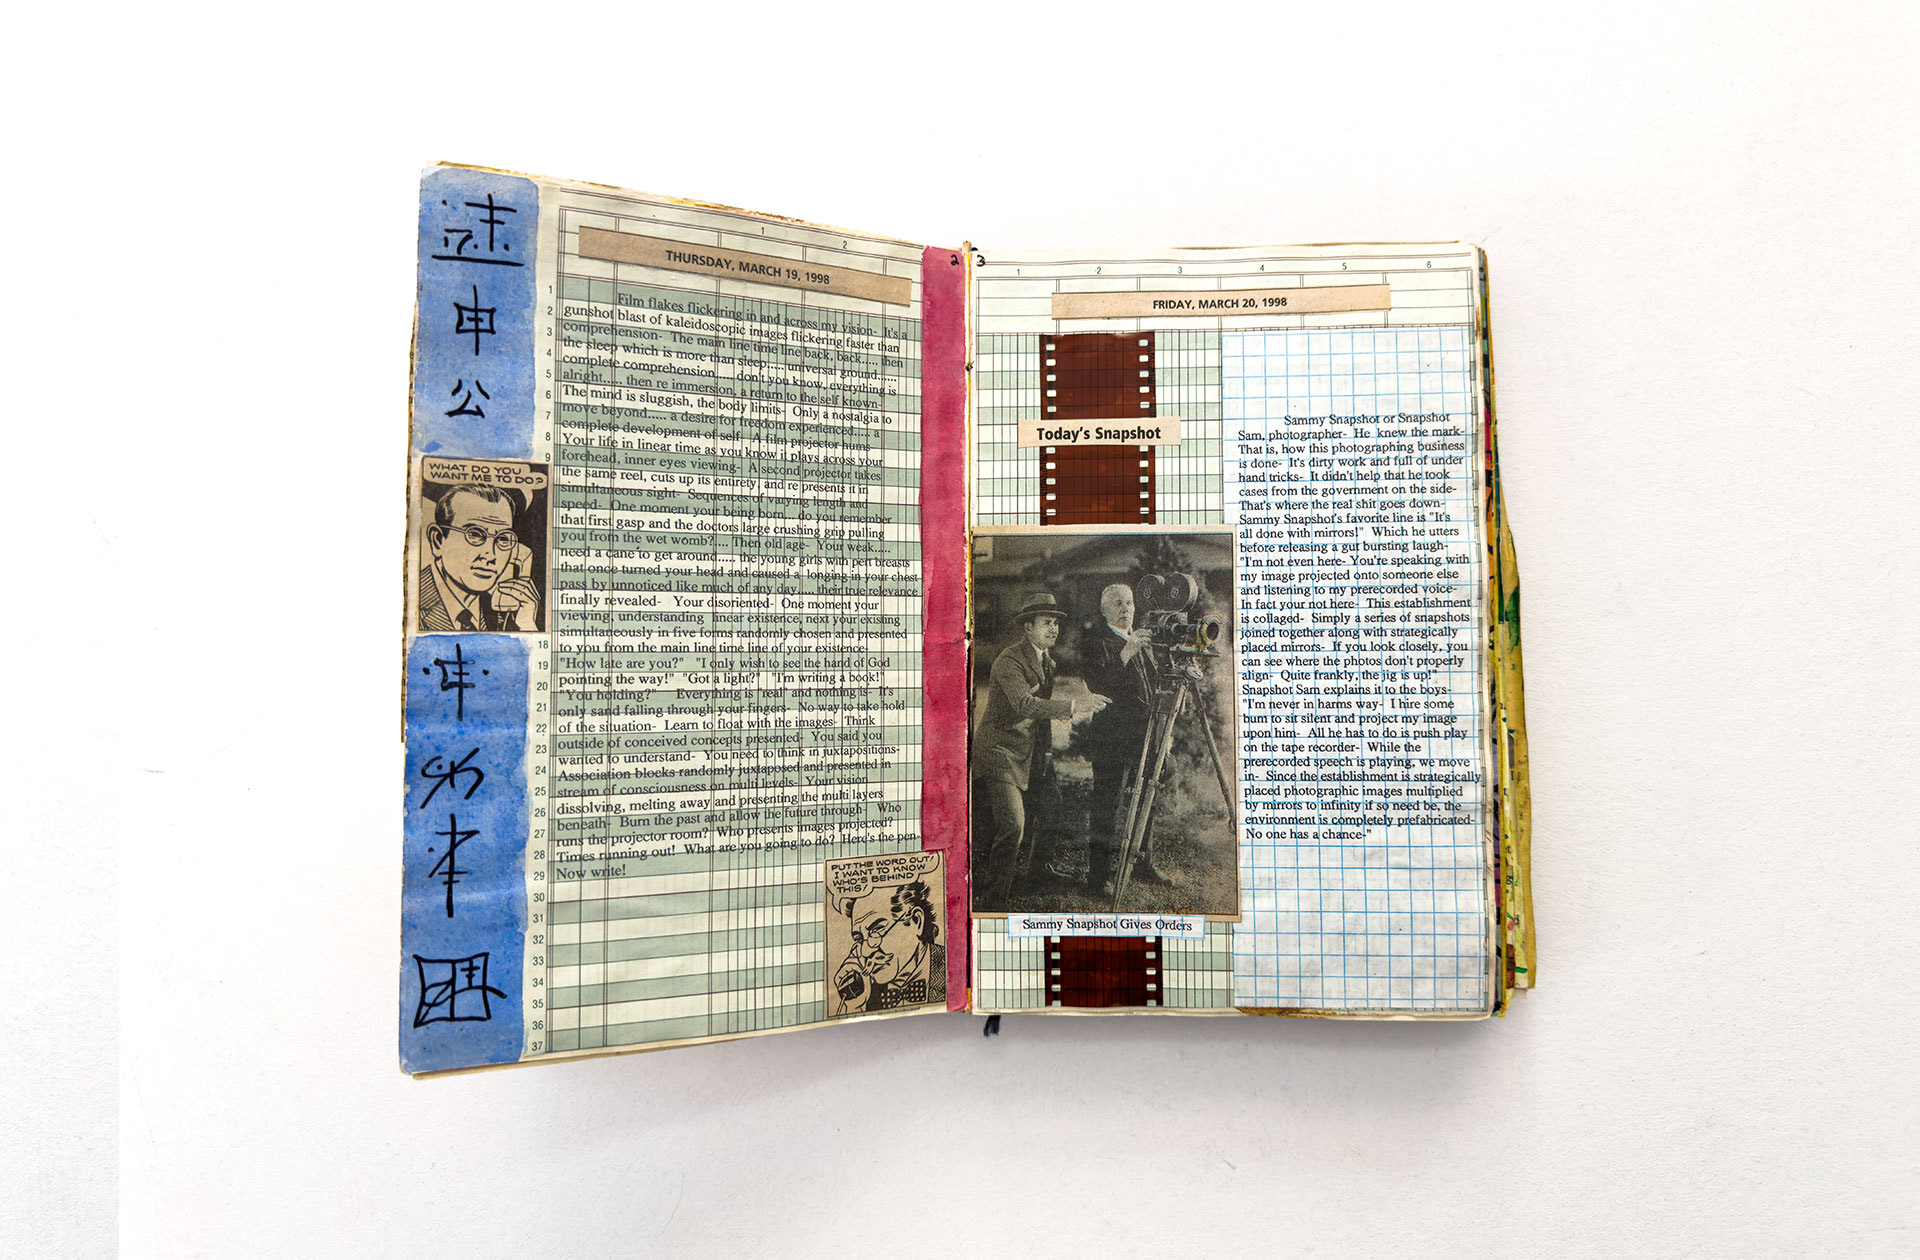 2
1
2
THURSDAY, MARCH 19, 1998
Film flakes flickering in and across my vision- It's a
gunshot blast of kaleidoscopic images flickering faster than
comprehension- The main line time line back, back..... then
the sleep which is more than sleep..... universal ground......
complete comprehension..... don't you know, everything is
alright..... then re immersion, a return to the self known-
The mind is sluggish, the body limits- Only a nostalgia to
move beyond..... a desire for freedom experienced..... a
complete development of self- A film projector hums-
Your life in linear time as you know it plays across your
forehead, inner eyes viewing- A second projector takes
the same reel, cuts up its entirety, and re presents it in
simultaneous sight- Sequences of varying length and
speed- One moment your being born... do you remember
that first gasp and the doctors large crushing grip pulling
you from the wet womb?.... Then old age- Your weak.....
need a cane to get around..... the young girls with pert breasts
that once turned your head and caused a longing in your chest
pass by unnoticed like much of any day..... their true relevance
finally revealed- Your disoriented- One moment your
viewing, understanding linear existence, next your existing
simultaneously in five forms randomly chosen and presented
to you from the main line time line of your existence-
"How late are you?" "I only wish to see the hand of God
pointing the way!" "Got a light?" "I'm writing a book!"
"You holding?" Everything is "real" and nothing is- It's
only sand falling through your fingers- No way to take hold
of the situation- Learn to float with the images- Think
outside of conceived concepts presented- You said you
wanted to understand- You need to think in juxtapositions-
Association blocks randomly juxtaposed and presented in
stream of consciousness on multi levels- Your vision
dissolving, melting away and presenting the multi layers
beneath- Burn the past and allow the future through- Who
runs the projector room? Who presents images projected?
Times running out! What are you going to do? Here's the pen-
Now write!
1
2
3
4
5
6
7
8
9
18
19
20
21
22
23
24
25
26
27
28
29
30
31
32
33
34
35
36
37
申
公
WHAT DO YOU
WANT ME TO DO?
PUT THE WORD OUT!
I WANT TO KNOW
WHO'S BEHIND
THIS!
3
1
2
3
4
5
6
FRIDAY, MARCH 20, 1998
Today's Snapshot
Sammy Snapshot Gives Orders
Sammy Snapshot or Snapshot
Sam, photographer- He knew the mark-
That is, how this photographing business
is done- It's dirty work and full of under
hand tricks- It didn't help that he took
cases from the government on the side-
That's where the real shit goes down-
Sammy Snapshot's favorite line is "It's
all done with mirrors!" Which he utters
before releasing a gut bursting laugh-
"I'm not even here- You're speaking with
my image projected onto someone else
and listening to my prerecorded voice-
In fact your not here- This establishment
is collaged- Simply a series of snapshots
joined together along with strategically
placed mirrors- If you look closely, you
can see where the photos don't properly
align- Quite frankly, the jig is up!"
Snapshot Sam explains it to the boys-
"I'm never in harms way- I hire some
bum to sit silent and project my image
upon him- All he has to do is push play
on the tape recorder- While the
prerecorded speech is playing, we move
in- Since the establishment is strategically
placed photographic images multiplied
by mirrors to infinity if so need be, the
environment is completely prefabricated-
No one has a chance-"